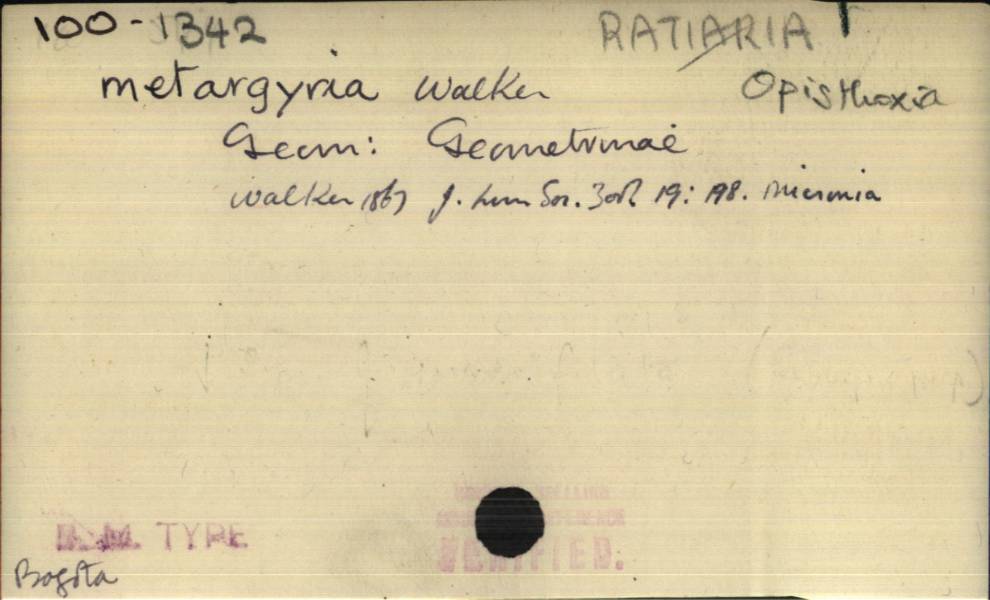 100-1342
RATIARIA
metargyria Walker
Opisthoxia
Geom: Geometrinae
Walker 1867 J. Linn Soc. Zool 19: 198. Micronia
B.M. TYPE
VERIFIED.
Bogota